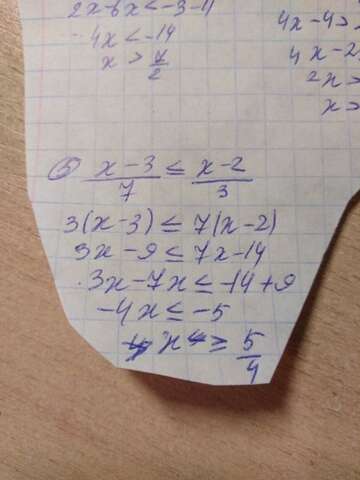 2x-6x<-3-4
4x<-14
x > 7/2
4x-4>
4x-2
2x>
x>
5 (x-3)/7 ≤ (x-2)/3
3(x-3) ≤ 7(x-2)
3x-9 ≤ 7x-14
3x-7x ≤ -14+9
-4x ≤ -5
x ≥ 5/4